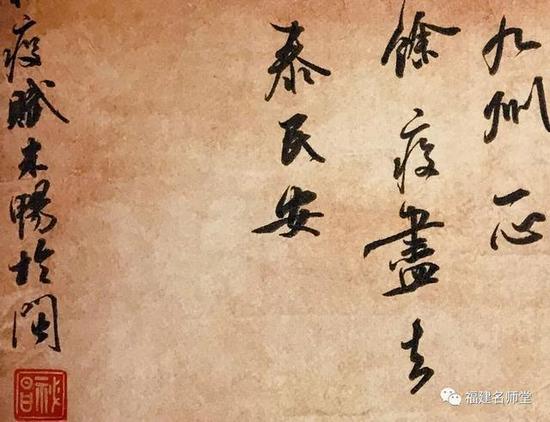 九州正
餘疫盡去
泰民安
疫賦朱暢於閩
福建名师堂